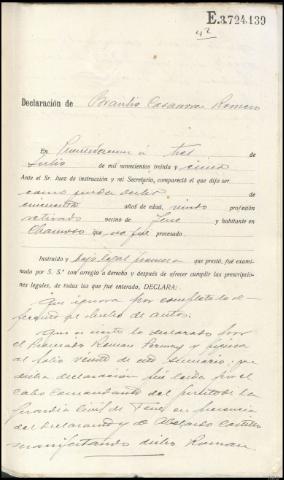 E.3.724.139
42
Declaración de Braulio Casanova Romero
En Puentedeume a tres de
Julio de mil novecientos treinta y cinco
Ante el Sr. Juez de instrucción y mi Secretario, compareció el que dijo ser
como queda dicho de
cincuenta años de edad, viudo profesión
retirado vecino de Fene y habitante en
Chamoso que no fué procesado.
Instruído y bajo legal promesa que prestó, fué exami-
nado por S. S.ª con arreglo a derecho y después de ofrecer cumplir las prescripcio-
nes legales, de todas las que fué enterado, DECLARA:
Que ignora por completo lo re-
ferente al hecho de autos.
Que es cierto lo declarado por
el Procesado Roman y figura
al folio veinte de este sumario: que
dicha declaración fué leida por el
cabo Comandante del puesto de la
Guardia Civil de Fene en presencia
del declarante y de Abelardo Castello
manifestando dicho Roman